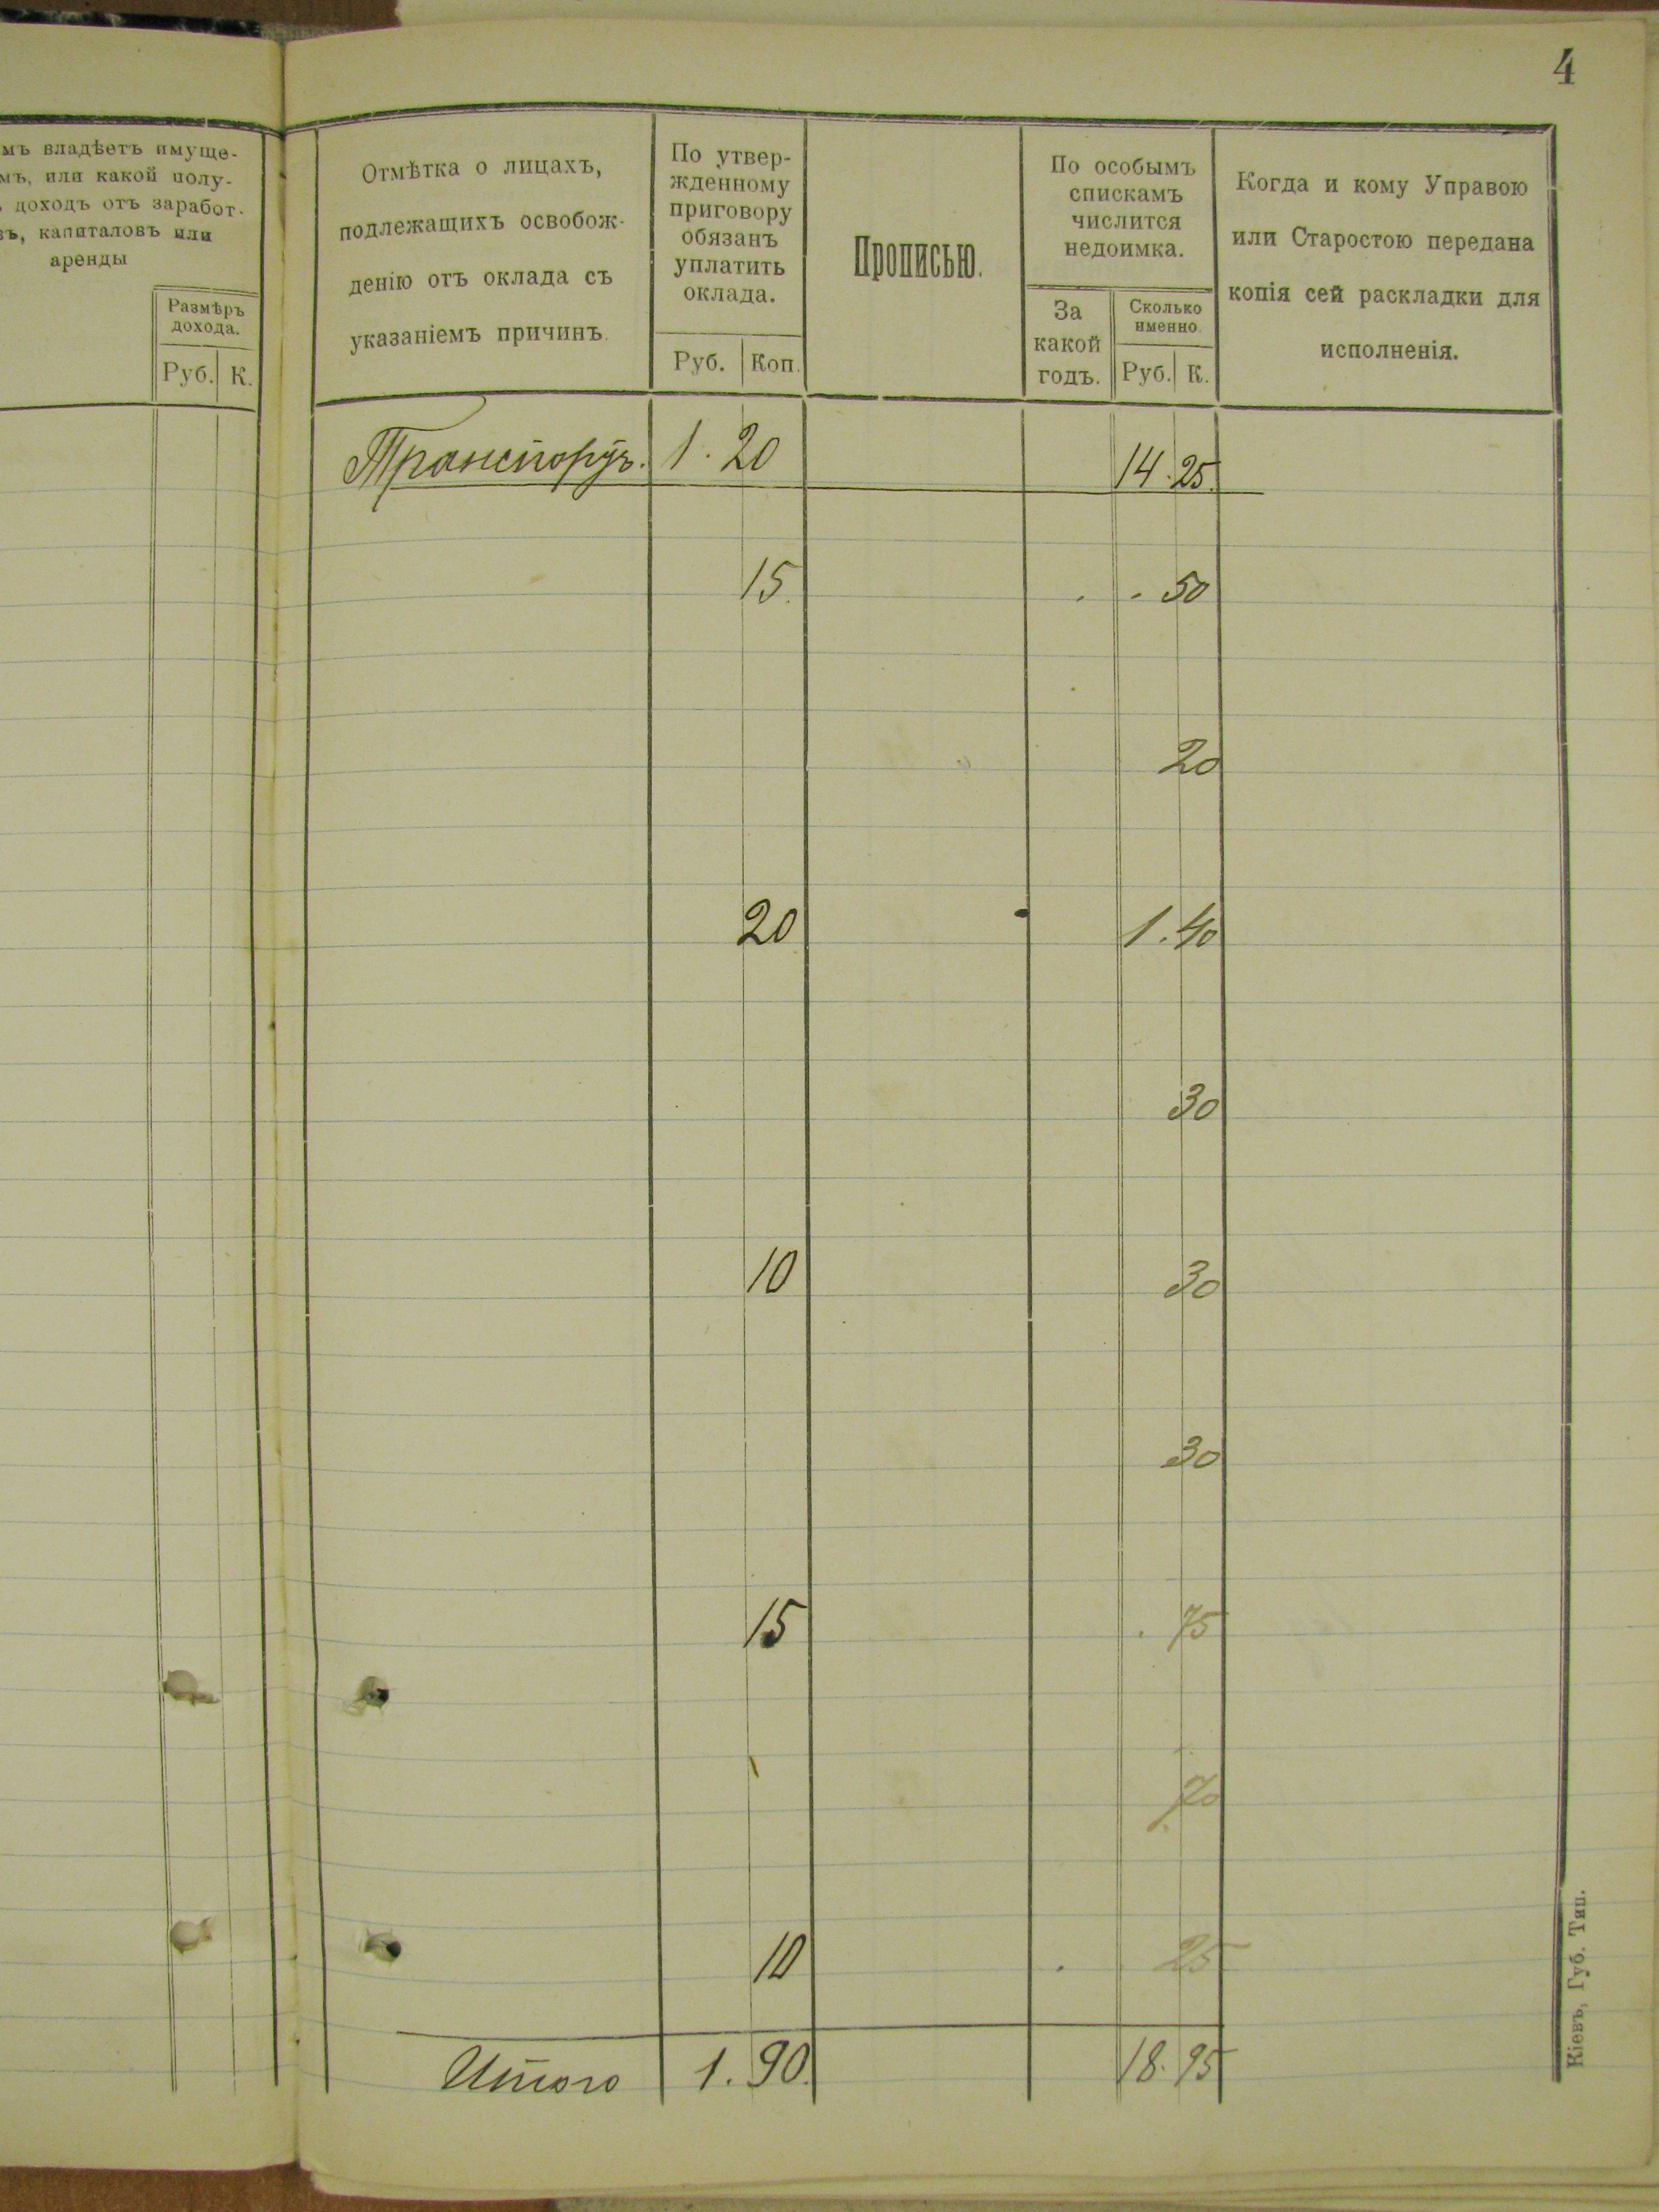 4
мъ владѣетъ имуще-
мъ, или какой полу-
ъ доходъ отъ заработ-
въ, капиталовъ или
аренды
Размѣръ
дохода.
Руб. К.
Отмѣтка о лицахъ,
подлежащихъ освобож-
денію отъ оклада съ
указаніемъ причинъ.
По утвер-
жденному
приговору
обязанъ
уплатить
оклада.
Руб. Коп.
Прописью.
По особымъ
спискамъ
числится
недоимка.
За
какой
годъ.
Сколько
именно.
Руб. К.
Когда и кому Управою
или Старостою передана
копія сей раскладки для
исполненія.
Транспортъ. 1. 20 14. 25.
15. 50
20
20 1. 40
30
10 30
30
15 75
70
10 25
Итого 1. 90. 18. 95
Кіевъ, Губ. Тип.